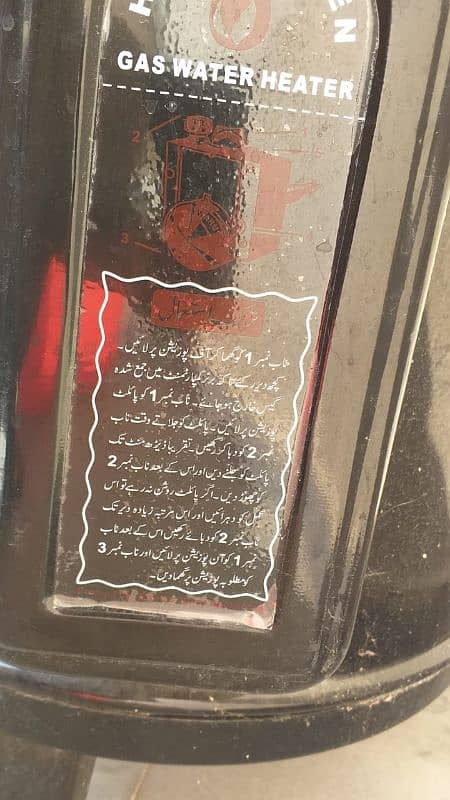 H EN
GAS WATER HEATER
1
2
3
ترکیب استعمال
ناب نمبر 1 کو گھما کر آف پوزیشن پر لائیں۔
کچھ دیر رکیے تاکہ برنر کمپارٹمنٹ میں جمع شدہ
گیس خارج ہو جائے۔ ناب نمبر 1 کو پائلٹ
پوزیشن پر لائیں۔ پائلٹ کو جلاتے وقت ناب
نمبر 2 کو دبا کر رکھیں۔ تقریباً ڈیڑھ منٹ تک
پائلٹ کو جلنے دیں اور اس کے بعد ناب نمبر 2
کو چھوڑ دیں۔ اگر پائلٹ روشن نہ رہے تو اس
عمل کو دہرائیں اور اس مرتبہ زیادہ دیر تک
ناب نمبر 2 کو دبائے رکھیں اس کے بعد ناب
نمبر 1 کو آن پوزیشن پر لائیں اور ناب نمبر 3
کو مطلوبہ پوزیشن پر گھما دیں۔